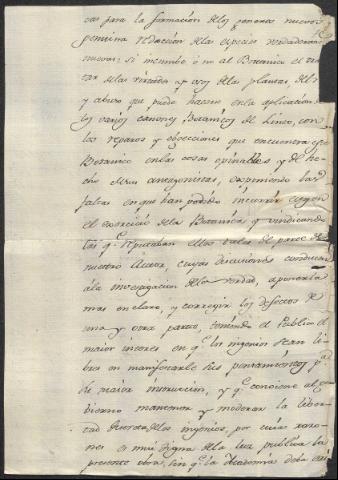 cas para la formacion delos generos nuevos
genuina reduccion delas especies verdaderam.
nuevas: si incumbe ó no al Botanico el tra
tar delas virtudes y usos delas plantas, del
y abuso que puede hacerse enla aplicacion
los varios canones Botanicos de Lineo, con
los reparos y objecciones que encuentra
Botanico enlas cosas opinables, y de he
cho desus antagonistas, exponiendo las
faltas en que han podido incurrir
el exercicio dela Botanica, y vindicando
las q.e reputaban tales de parte de
nuestro Autor, cuyas discusiones conducen
ála investigacion dela verdad, aponerla
mas en claro, y corregir los defectos de
una y otra parte, teniendo el Publico el
maior interes en q.e los ingenios sean li
bres en manifestarle sus pensamientos p.a
su maior instruccion, y q.e conviene al go
bierno mantener y moderar la liber
tad delos ingenios, por cuias razo
nes es mui digna dela luz publica la
presente obra, sin q.e la Academia deba